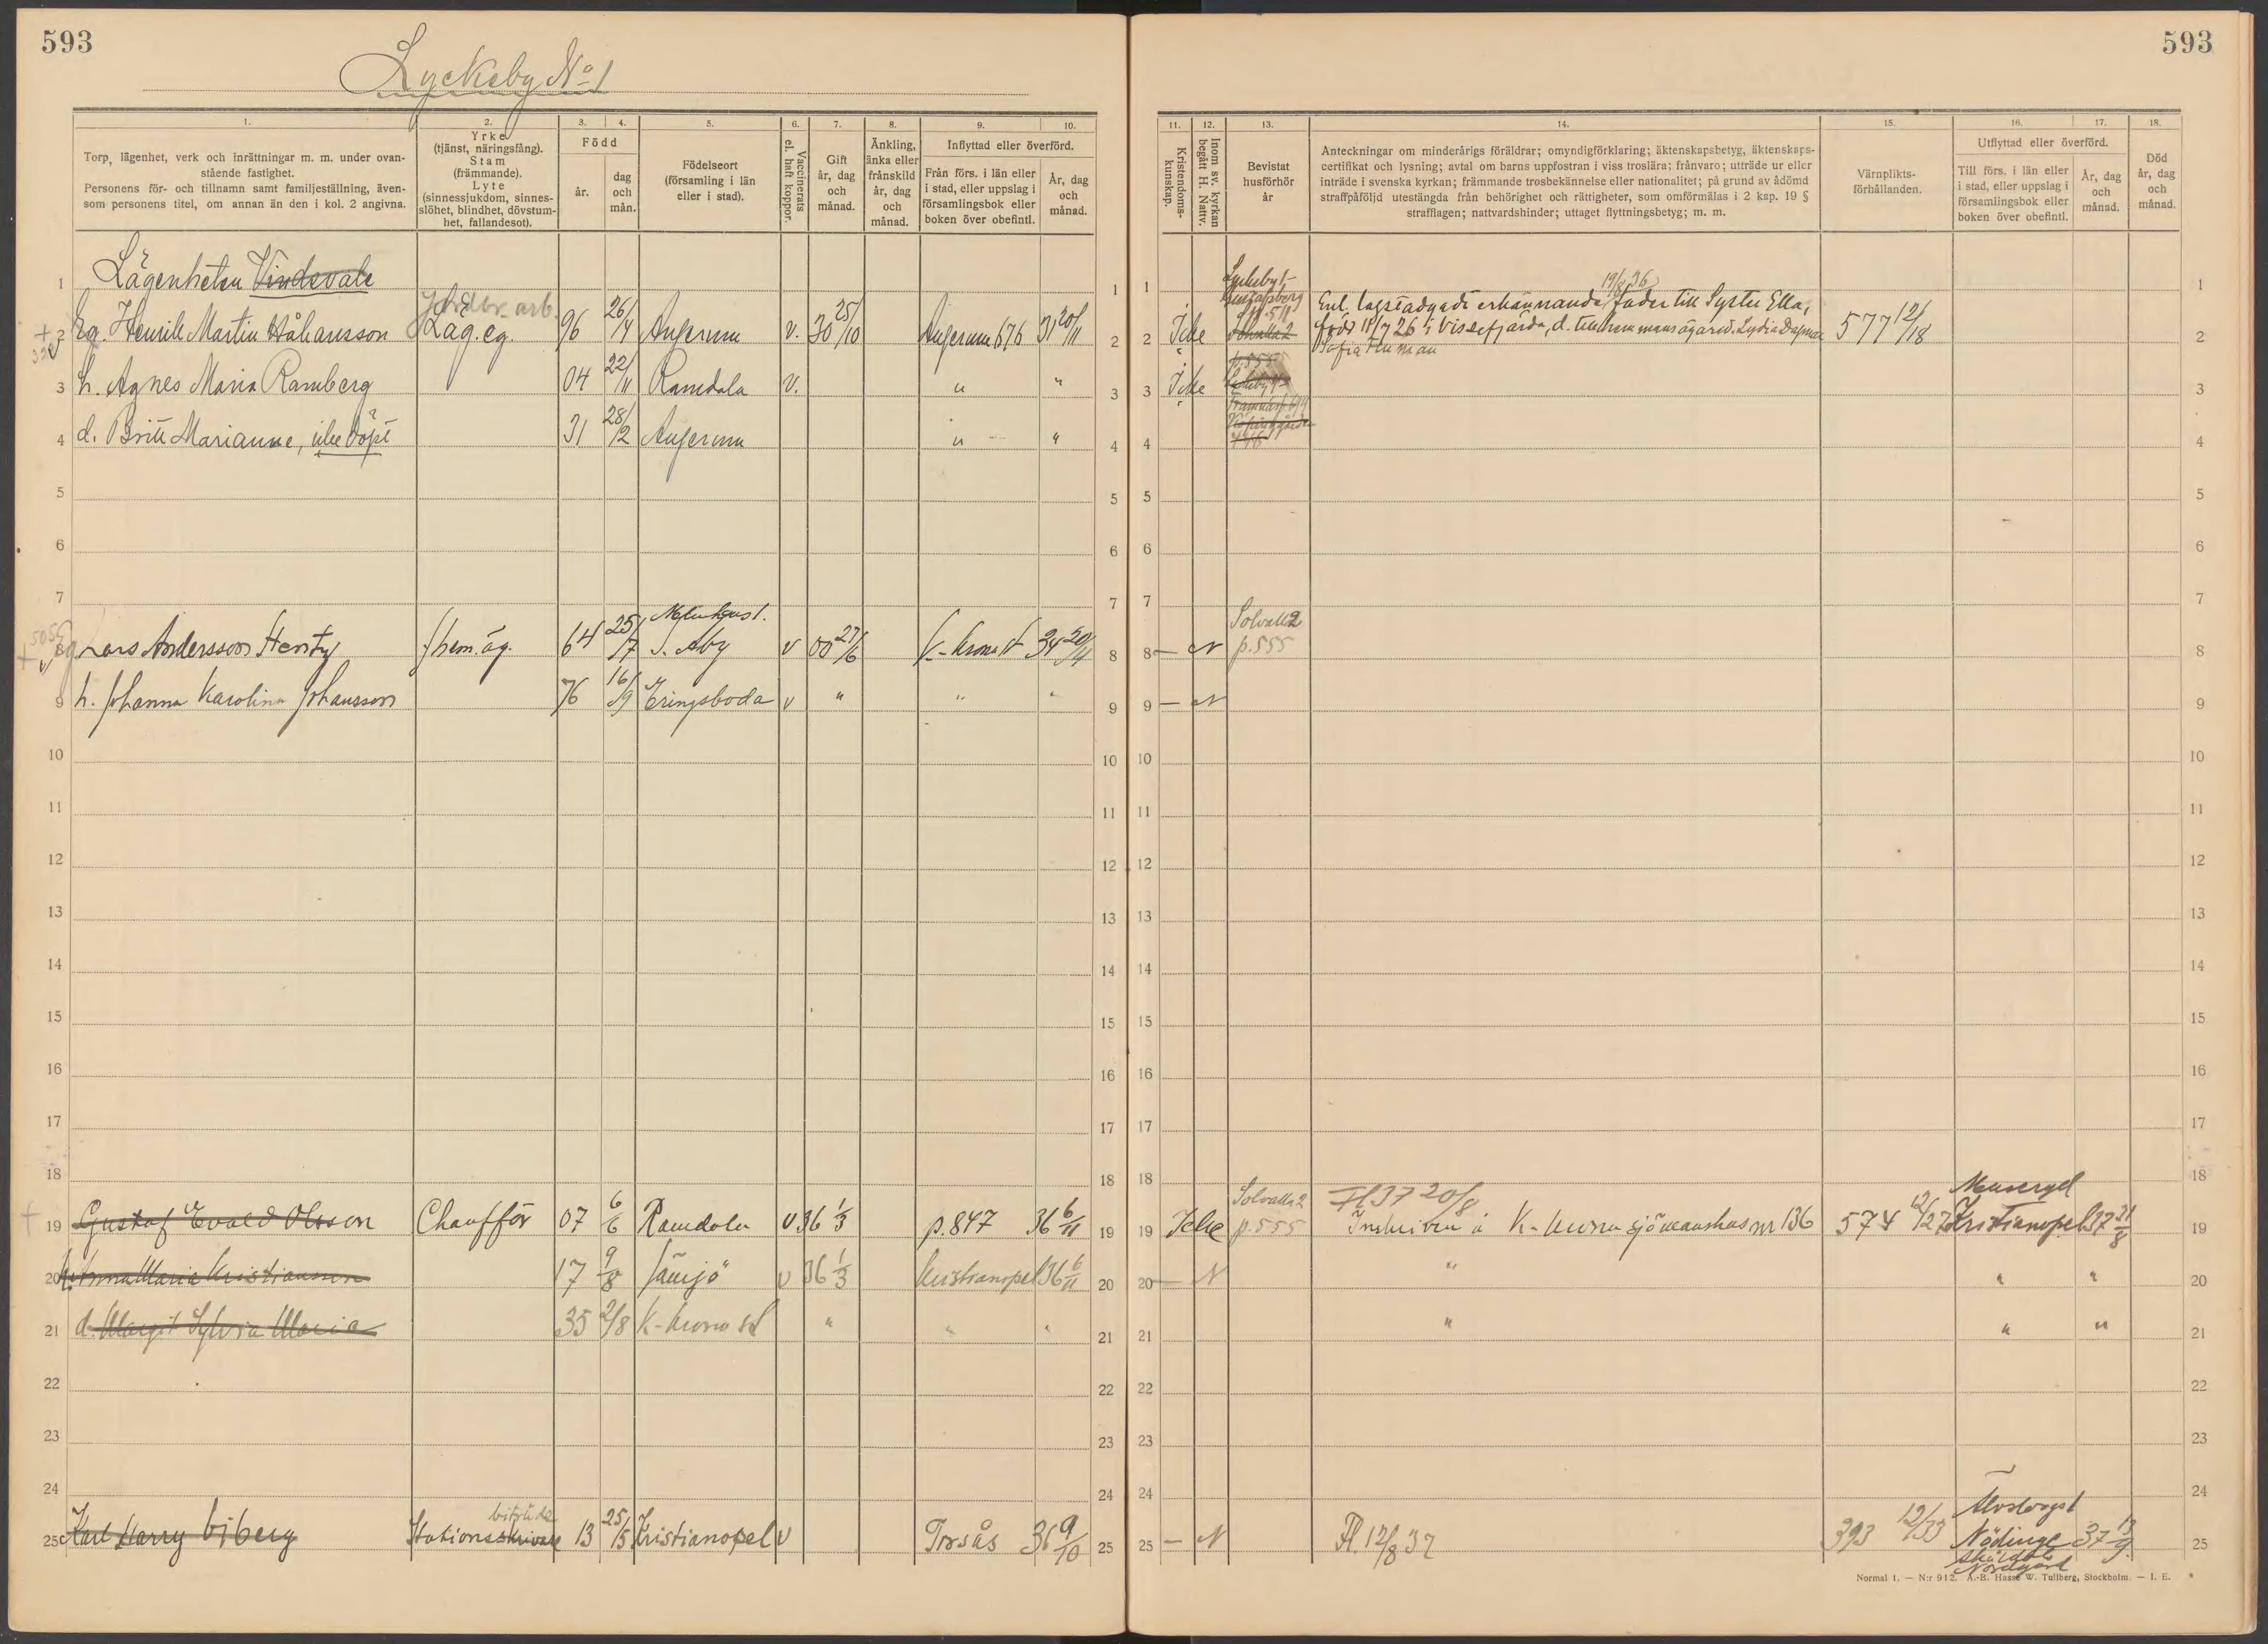 593
Lyckeby No 1
1.
Torp, lägenhet, verk och inrättningar m. m. under ovan-
stående fastighet.
Personens för- och tillnamn samt familjeställning, även-
som personens titel, om annan än den i kol. 2 angivna.
2.
Yrke
(tjänst, näringsfång).
Stam
(främmande).
Lyte
(sinnessjukdom, sinnes-
slöhet, blindhet, dövstum-
het, fallandesot).
3. 4.
Född
år.
dag
och
mån.
5.
Födelseort
(församling i län
eller i stad).
6.
Vaccinerats
el. haft koppor.
7.
Gift
år, dag
och
månad.
8.
Änkling,
änka eller
frånskild
år, dag
och
månad.
9. 10.
Inflyttad eller överförd.
Från förs. i län eller
i stad, eller uppslag i
församlingsbok eller
boken över obefintl.
År, dag
och
månad.
1 Lägenheten Vindsvale 1
Jordbr. arb.
2 Eg. Henrik Martin Håkansson Läg. eg. 96 26/4 Augerum v. 30 25/10 Augerum 676 31 20/11 2
3 h. Agnes Maria Ramberg 04 22/11 Ramdala v. " " 3
4 d. Britt Marianne, icke döpt 31 28/2 Augerum " " 4
5 5
6 6
7 7
8 Eg Lars Andersson Henty hem. äg. 64 25/7 S. Åby v 00 27/6 K-krona 34 20/11 8
9 h. Johanna Karolina Johansson 76 16/9 Eringsboda v " " " 9
10 10
11 11
12 12
13 13
14 14
15 15
16 16
17 17
18 18
19 Gustaf Evald Olsson Chaufför 07 6/6 Ramdala v 36 1/3 p. 847 36 6/11 19
20 h. Anna Maria Kristiansson 17 9/8 Jämjö v 36 1/3 Kristianopel 36 6/11 20
21 d. Margit Sylvia Maria 35 2/8 K-krona st " " " 21
22 22
23 23
24 24
biträde
25 Karl Harry Viberg Stationsskrivare 13 25/5 Kristianopel v Torsås 36 9/10 25
593
11.
Kristendoms-
kunskap.
12.
Inom sv. kyrkan
begått H. Nattv.
13.
Bevistat
husförhör
år
14.
Anteckningar om minderårigs föräldrar; omyndigförklaring; äktenskapsbetyg, äktenskaps-
certifikat och lysning; avtal om barns uppfostran i viss troslära; frånvaro; utträde ur eller
inträde i svenska kyrkan; främmande trosbekännelse eller nationalitet; på grund av ådömd
straffpåföljd utestängda från behörighet och rättigheter, som omförmälas i 2 kap. 19 §
strafflagen; nattvardshinder; uttaget flyttningsbetyg; m. m.
15.
Värnplikts-
förhållanden.
16. 17.
Utflyttad eller överförd.
Till förs. i län eller
i stad, eller uppslag i
församlingsbok eller
boken över obefintl.
År, dag
och
månad.
18.
Död
år, dag
och
månad.
1 Lyckeby 1 19/8 36 1
2 Icke Enl. lagstadgadt erkännande fader till Syster Ella, 577 12/18 2
född 18/7 26 i Vissefjärda, d. till hemmansägared. Lydia Dagmar
Sofia
3 Icke 3
4 4
5 5
6 6
7 7
Solvalla 2
8 — N p. 555 8
9 — N 9
10 10
11 11
12 12
13 13
14 14
15 15
16 16
17 17
18 18
Solvalla 2 Fl. 37 20/8
19 Icke p. 555 Inskriven å K-krona sjömanshus nr 136 574 12/27 Kristianopel 37 31/8 19
20 — N " " " 20
21 " " " 21
22 22
23 23
24 24
Älvsborgs l
25 — N Fl. 12/8 37 393 12/33 Nödinge 37 13/9 25
Nordgård
Normal 1. — N:r 912. A.-B. Hasse W. Tullberg, Stockholm. — I. E.